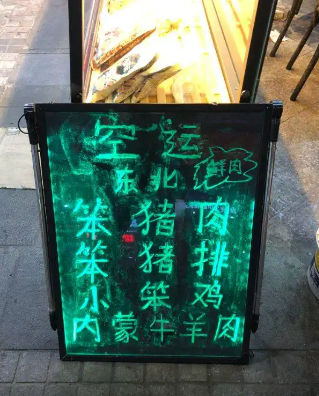 空运
东北 鲜肉
笨猪肉
笨猪排
小笨鸡
内蒙牛羊肉